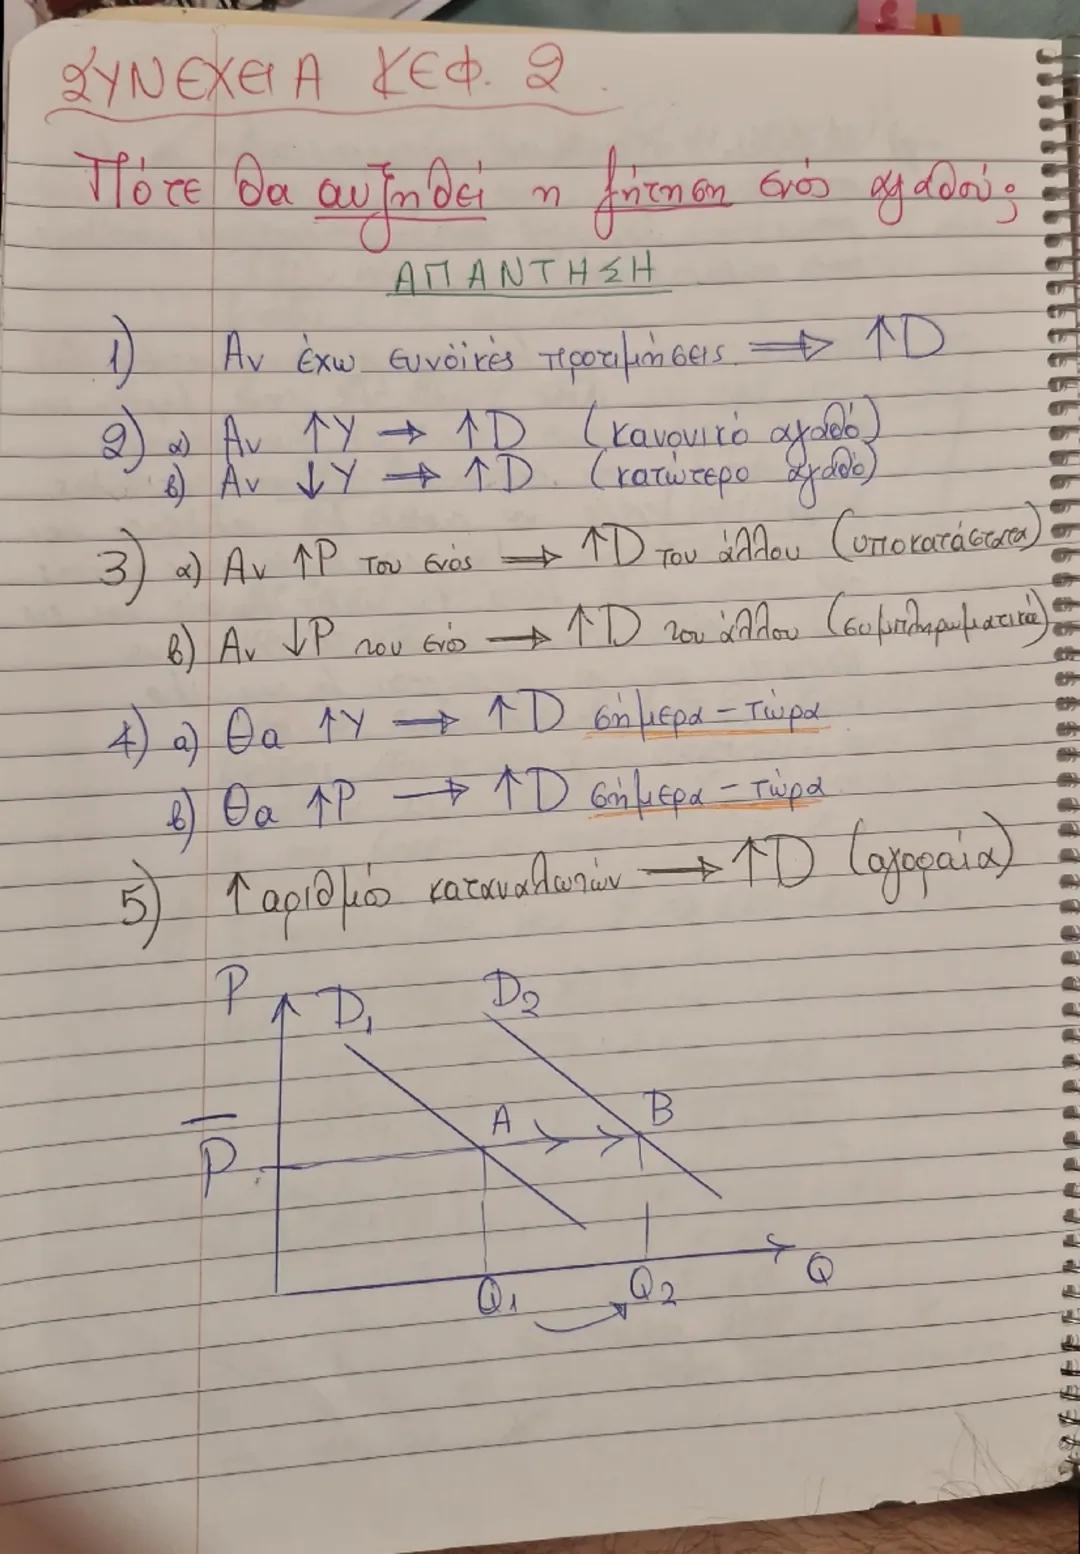 ΣΥΝΕΧΕΙΑ ΚΕΦ. 2.
Πότε θα αυξηθεί η ζήτηση ενός αγαθού;
ΑΠΑΝΤΗΣΗ
1) Αν έχω ευνοϊκές προτιμήσεις ⇒ ↑D
2) α) Αν ↑Y → ↑D (κανονικό αγαθό)
β) Αν ↓Y → ↑D (κατώτερο αγαθό)
3) α) Αν ↑P του ενός → ↑D του άλλου (υποκατάστατα)
β) Αν ↓P του ενός → ↑D του άλλου (συμπληρωματικά)
4) α) Θα ↑Y → ↑D σήμερα - τώρα
β) Θα ↑P → ↑D σήμερα - τώρα
5) ↑ αριθμός καταναλωτών → ↑D (αγοραία)
P D₁ D₂
A B
P̅
Q₁ Q₂ Q